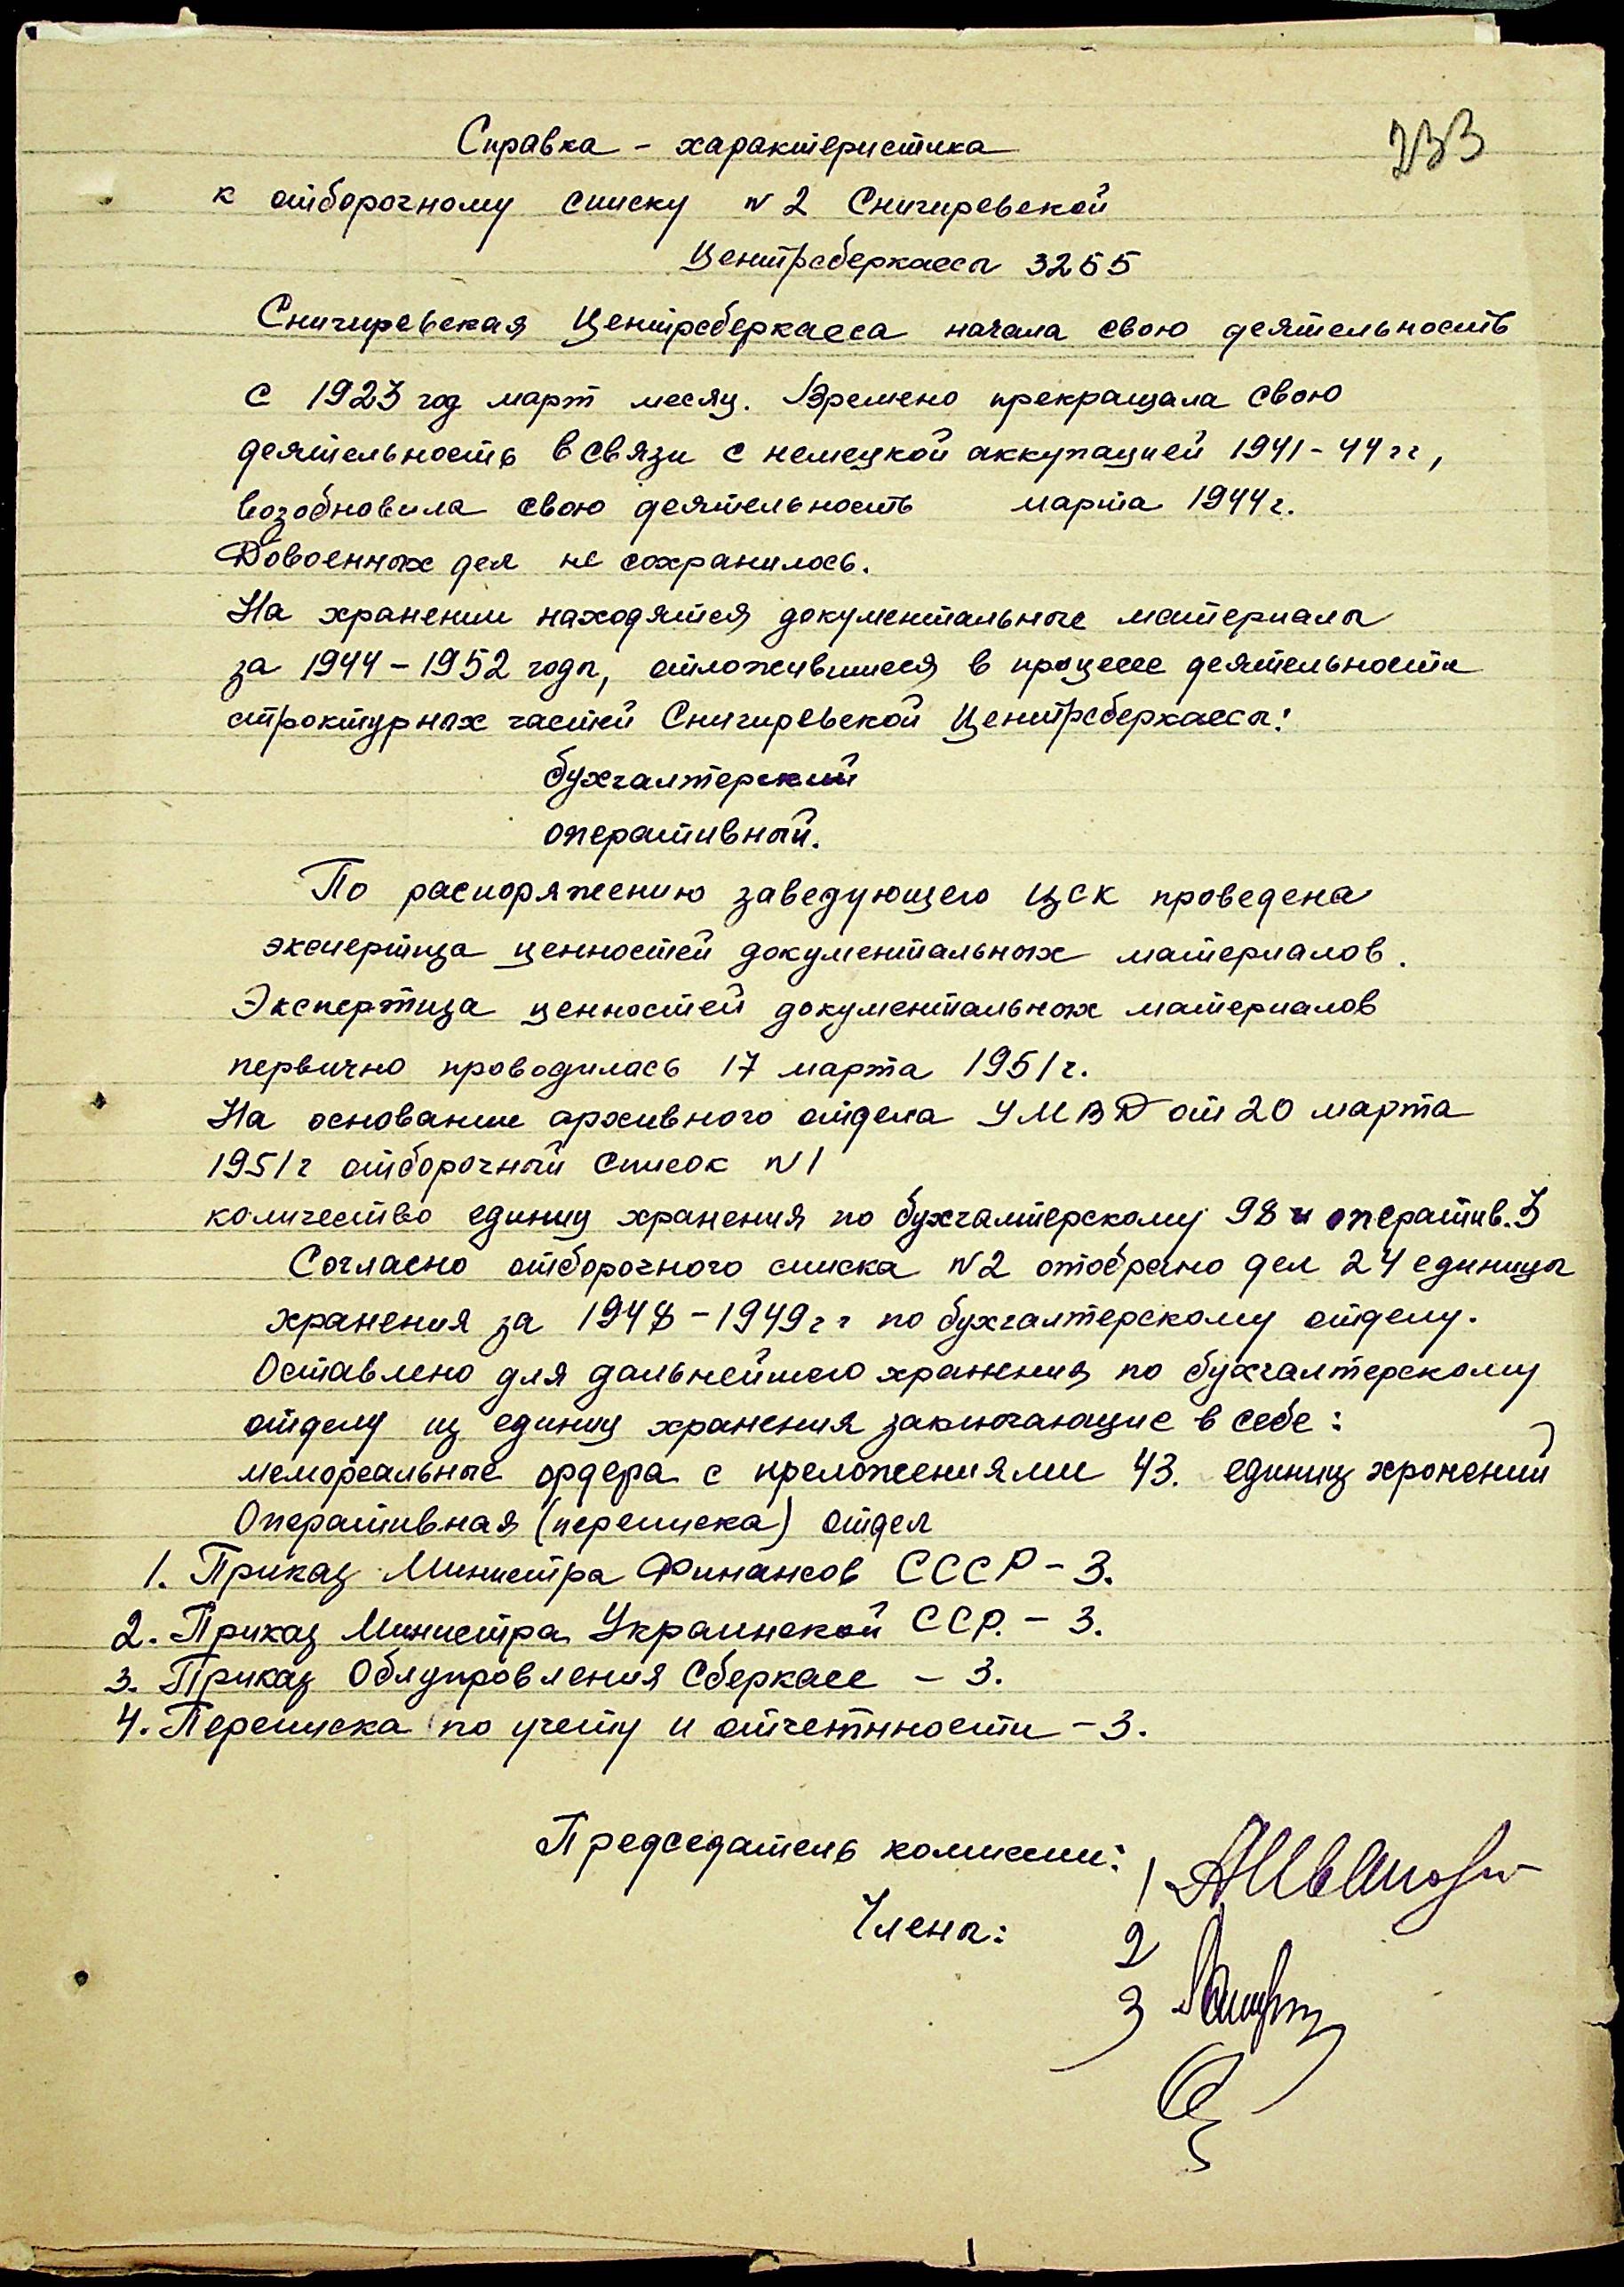 233
Справка - характеристика
к отборочному списку N 2 Снигиревской
Центрсберкассы 3255
Снигиревская Центрсберкасса начала свою деятельность
с 1923 год март месяц. Времено прекращала свою
деятельность в связи с немецкой аккупацией 1941-44 гг,
возобновила свою деятельность марта 1944 г.
Довоенных дел не сохранилось.
На хранении находятся документальные материалы
за 1944-1952 годы, отложившиеся в процессе деятельности
строктурных частей Снигиревской Центрсберкассы:
бухгалтерский
оперативный.
По распоряжению заведующего ЦСК проведена
экспертиза ценностей документальных материалов.
Экспертиза ценностей документальных материалов
первично проводилась 17 марта 1951 г.
На основании архивного отдела УМВД от 20 марта
1951 г отборочный список N 1
количество единиц хранения по бухгалтерскому 98 и оператив. 3
Согласно отборочного списка N 2 отобрано дел 24 единицы
хранения за 1948-1949 гг по бухгалтерскому отделу.
Оставлено для дальнейшего хранения по бухгалтерскому
отделу из единиц хранения заключающие в себе:
мемореальные ордера с преложениями 43. единиц хронений
Оперативная (переписка) отдел
1. Приказ Министра Финансов СССР - 3.
2. Приказ Министра Украинской ССР. - 3.
3. Приказ Облупровления Сберкасс - 3.
4. Переписка по учету и отчетнности - 3.
Председатель комиссии: 1
Члены: 2
3